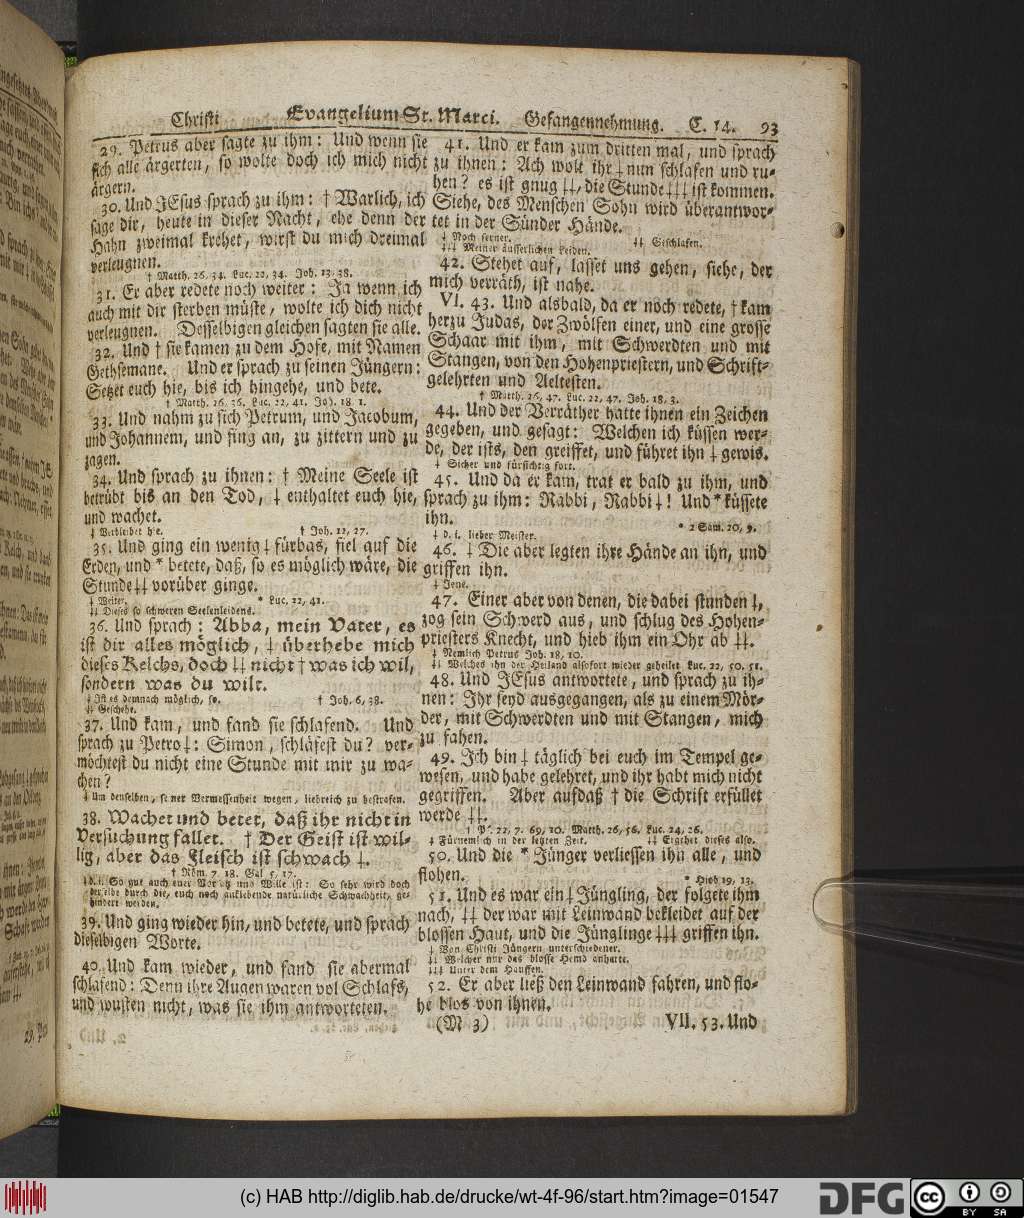 Christi Evangelium St. Marci. Gefangennehmung. C. 14. 93
29. Petrus aber sagte zu ihm: Und wenn sie
sich alle ärgerten, so wolte doch ich mich nicht
ärgern.
30. Und JEsus sprach zu ihm: † Warlich, ich
sage dir, heute in dieser Nacht, ehe denn der
Hahn zweimal krehet, wirst du mich dreimal
verleugnen.
† Matth. 26, 34. Luc. 22, 34. Joh. 13, 38.
31. Er aber redete noch weiter: Ja wenn ich
auch mit dir sterben müste, wolte ich dich nicht
verleugnen. Desselbigen gleichen sagten sie alle.
32. Und † sie kamen zu dem Hofe, mit Namen
Gethsemane. Und er sprach zu seinen Jüngern:
Setzet euch hie, bis ich hingehe, und bete.
† Matth. 26, 36. Luc. 22, 41. Joh. 18, 1.
33. Und nahm zu sich Petrum, und Jacobum,
und Johannem, und fing an, zu zittern und zu
zagen.
34. Und sprach zu ihnen: † Meine Seele ist
betrübt bis an den Tod, ‡ enthaltet euch hie,
und wachet.
‡ Verbleibet hie. † Joh. 12, 27.
35. Und ging ein wenig ‡ fürbas, fiel auf die
Erden, und * betete, daß, so es möglich wäre, die
Stunde ‡‡ vorüber ginge.
‡ Weiter. * Luc. 22, 41.
‡‡ Dieses so schweren Seelenleidens.
36. Und sprach: Abba, mein Vater, es
ist dir alles möglich, ‡ überhebe mich
dieses Kelchs, doch ‡‡ nicht † was ich wil,
sondern was du wilt.
‡ Ist es demnach möglich, so. † Joh. 6, 38.
‡‡ Geschehe.
37. Und kam, und fand sie schlafend. Und
sprach zu Petro ‡: Simon, schläfest du? ver-
möchtest du nicht eine Stunde mit mir zu wa-
chen?
‡ Um denselben, seiner Vermessenheit wegen, liebreich zu bestrafen.
38. Wachet und betet, daß ihr nicht in
Versuchung fallet. † Der Geist ist wil-
lig, aber das Fleisch ist schwach ‡.
† Röm. 7, 18. Gal. 5, 17.
‡ d. i. So gut auch euer Vorsatz und Wille ist: So sehr wird doch
derselbe durch die, euch noch anklebende natürliche Schwachheit, ge-
hindert werden.
39. Und ging wieder hin, und betete, und sprach
dieselbigen Worte.
40. Und kam wieder, und fand sie abermal
schlafend: Denn ihre Augen waren vol Schlafs,
und wusten nicht, was sie ihm antworteten.
41. Und er kam zum dritten mal, und sprach
zu ihnen: Ach wolt ihr ‡ nun schlafen und ru-
hen? es ist gnug ‡‡, die Stunde ‡‡‡ ist kommen.
Siehe, des Menschen Sohn wird überantwor-
tet in der Sünder Hände.
‡ Noch ferner. ‡‡ Geschlafen.
‡‡‡ Meiner äusserlichen Leiden.
42. Stehet auf, lasset uns gehen, siehe, der
mich verräth, ist nahe.
VI. 43. Und alsbald, da er noch redete, † kam
herzu Judas, der Zwölfen einer, und eine grosse
Schaar mit ihm, mit Schwerdten und mit
Stangen, von den Hohenpriestern, und Schrift-
gelehrten und Aeltesten.
† Matth. 26, 47. Luc. 22, 47. Joh. 18, 3.
44. Und der Verräther hatte ihnen ein Zeichen
gegeben, und gesagt: Welchen ich küssen wer-
de, der ists, den greiffet, und führet ihn ‡ gewis.
‡ Sicher und fürsichtig fort.
45. Und da er kam, trat er bald zu ihm, und
sprach zu ihm: Rabbi, Rabbi ‡! Und * küssete
ihn. * 2 Sam. 20, 9.
‡ d. i. lieber Meister.
46. ‡ Die aber legten ihre Hände an ihn, und
griffen ihn.
‡ Jene.
47. Einer aber von denen, die dabei stunden ‡,
zog sein Schwerd aus, und schlug des Hohen-
priesters Knecht, und hieb ihm ein Ohr ab ‡‡.
‡ Nemlich Petrus Joh. 18, 10.
‡‡ Welches ihn der Heiland alsofort wieder geheilet Luc. 22, 50. 51.
48. Und JEsus antwortete, und sprach zu ih-
nen: Ihr seyd ausgegangen, als zu einem Mör-
der, mit Schwerdten und mit Stangen, mich
zu fahen.
49. Ich bin ‡ täglich bei euch im Tempel ge-
wesen, und habe gelehret, und ihr habt mich nicht
gegriffen. Aber aufdaß † die Schrift erfüllet
werde ‡‡.
† Ps. 22, 7. 69, 10. Matth. 26, 56. Luc. 24, 26.
‡ Fürnemlich in der letzten Zeit. ‡‡ Ergehet dieses also.
50. Und die * Jünger verliessen ihn alle, und
flohen. * Hiob 19, 13.
51. Und es war ein ‡ Jüngling, der folgete ihm
nach, ‡‡ der war mit Leinwand bekleidet auf der
blossen Haut, und die Jünglinge ‡‡‡ griffen ihn.
‡ Von Christi Jüngern unterschiedener.
‡‡ Welcher nur das blosse Hemd anhatte.
‡‡‡ Unter dem Hauffen.
52. Er aber ließ den Leinwand fahren, und flo-
he blos von ihnen.
(M 3) VII. 53. Und
(c) HAB http://diglib.hab.de/drucke/wt-4f-96/start.htm?image=01547
DFG
cc BY SA